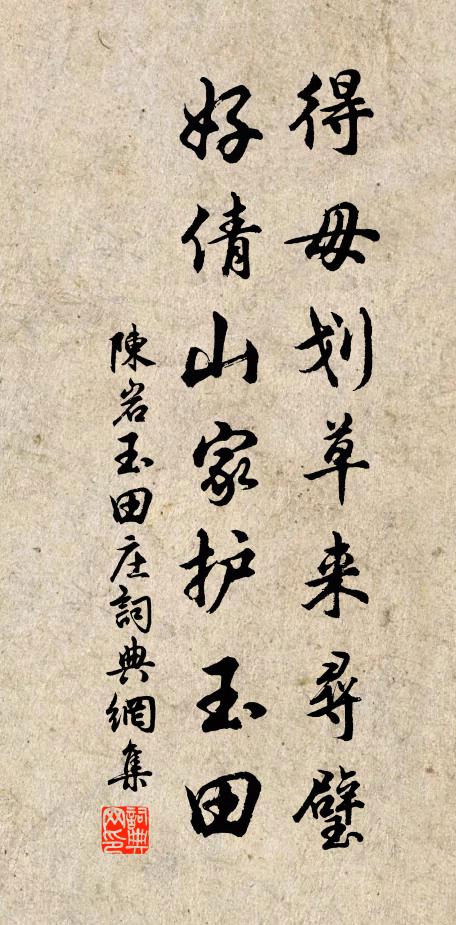 得毋划草来尋璧
好倩山家护玉田
陳岩玉田庄詞典網集
詞典网印